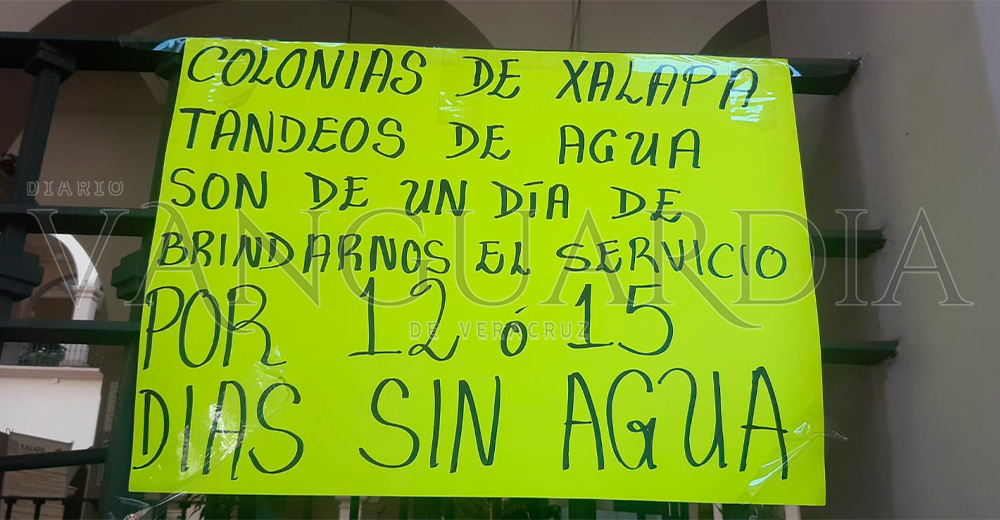 COLONIAS DE XALAPA
TANDEOS DE AGUA
SON DE UN DÍA DE
BRINDARNOS EL SERVICIO
POR 12 ó 15
DIAS SIN AGUA
DIARIO
VANGUARDIA
DE VERACRUZ
XALAPA